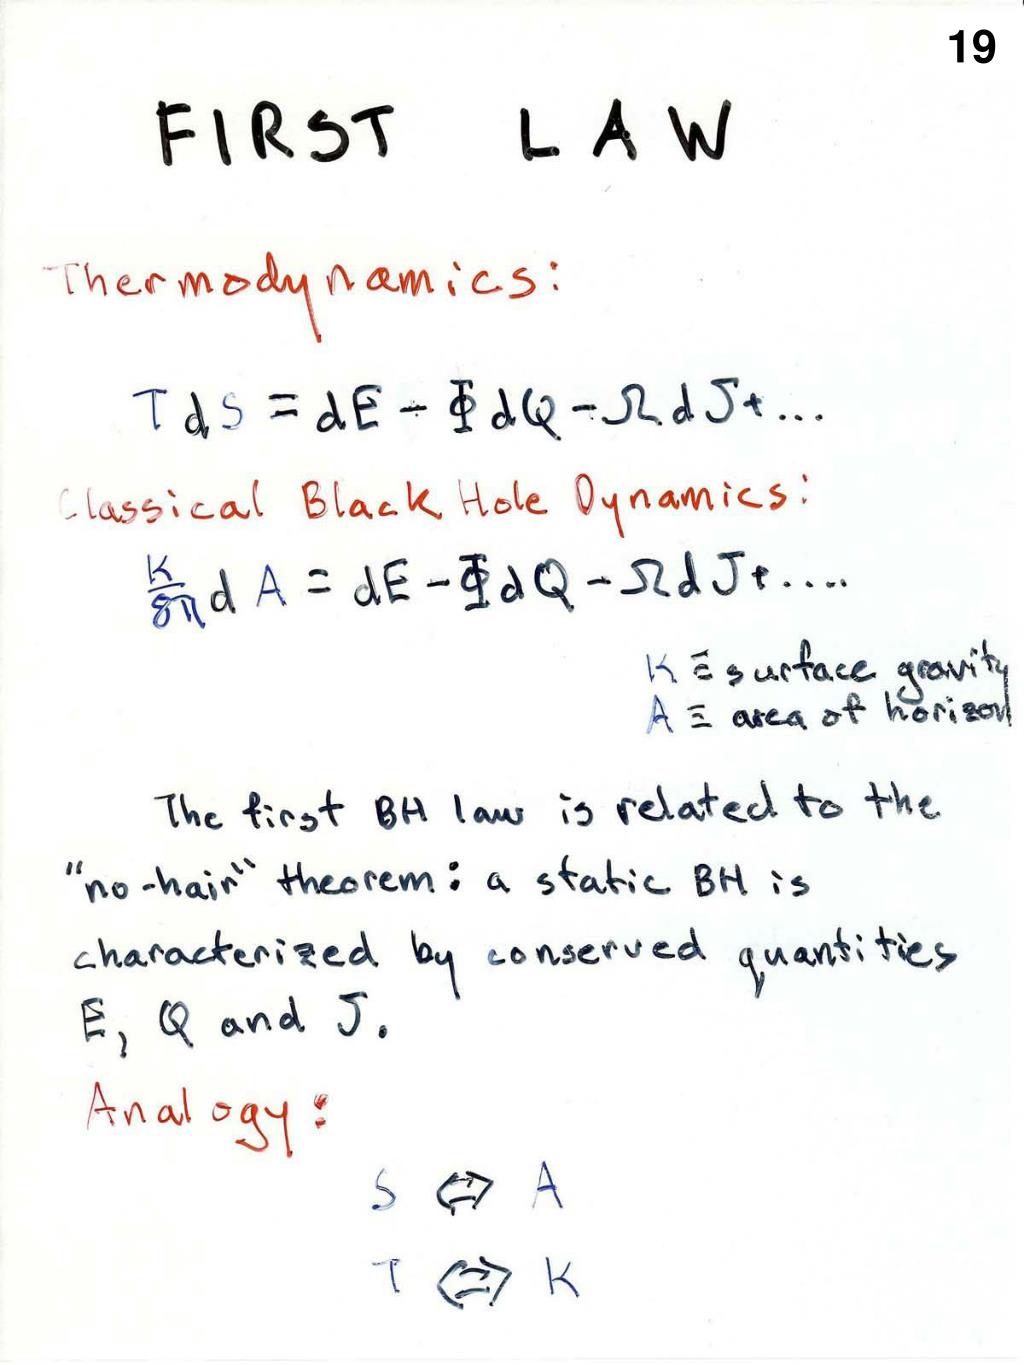 19
FIRST LAW
Thermodynamics:
TdS = dE - ΦdQ - ΩdJ+...
Classical Black Hole Dynamics:
K/8π d A = dE - ΦdQ - ΩdJ+....
K ≡ surface gravity
A ≡ area of horizon
The first BH law is related to the
"no-hair" theorem: a static BH is
characterized by conserved quantities
E, Q and J.
Analogy:
S ⇔ A
T ⇔ K